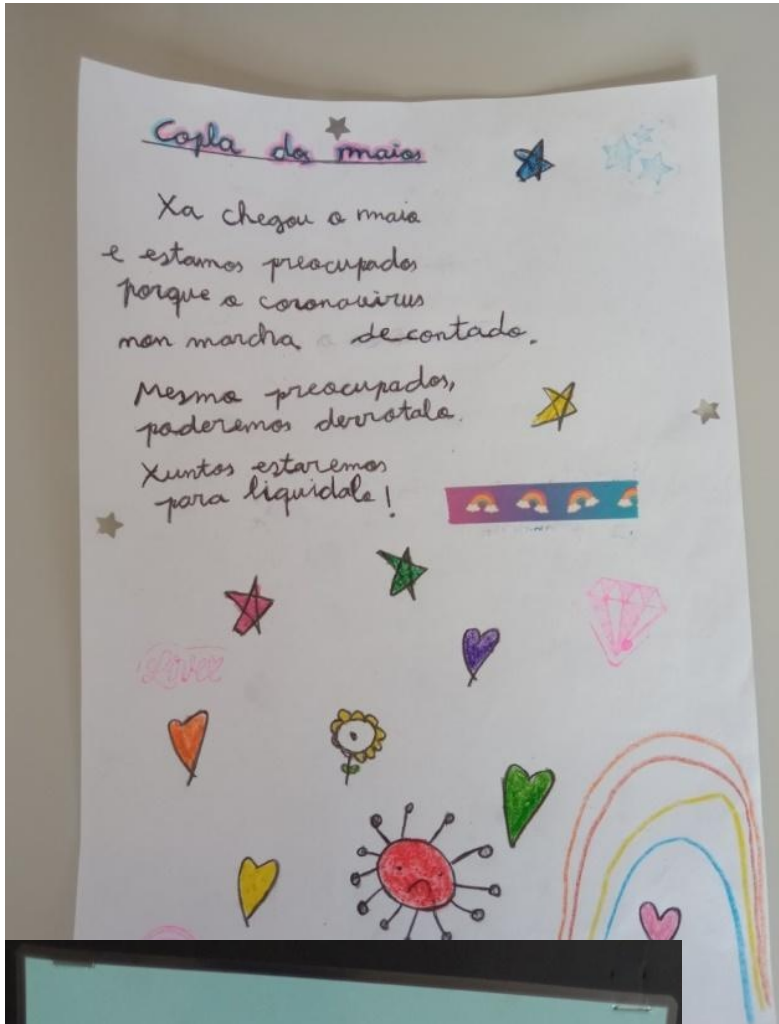 Copla dos maios
Xa chegou o maio
e estamos preocupados
porque o coronavirus
non marcha decontado.
Mesmo preocupados,
poderemos derrotalo.
Xuntos estaremos
para liquidalo!